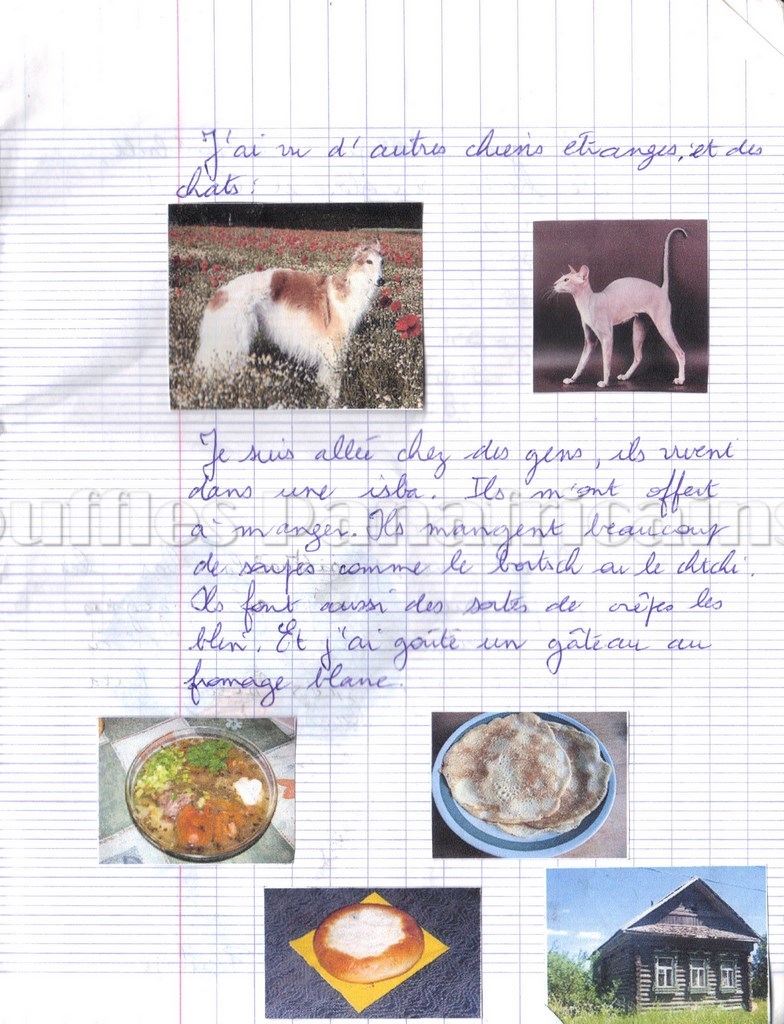 J'ai vu d'autres chiens étranges, et des
chats :
Je suis allée chez des gens, ils vivent
dans une isba. Ils m'ont offert
à manger. Ils mangent beaucoup
de soupes comme le bortsch ou le chtchi.
Ils font aussi des sortes de crêpes les
blini. Et j'ai goûté un gâteau au
fromage blanc.
ouffles Panafricains